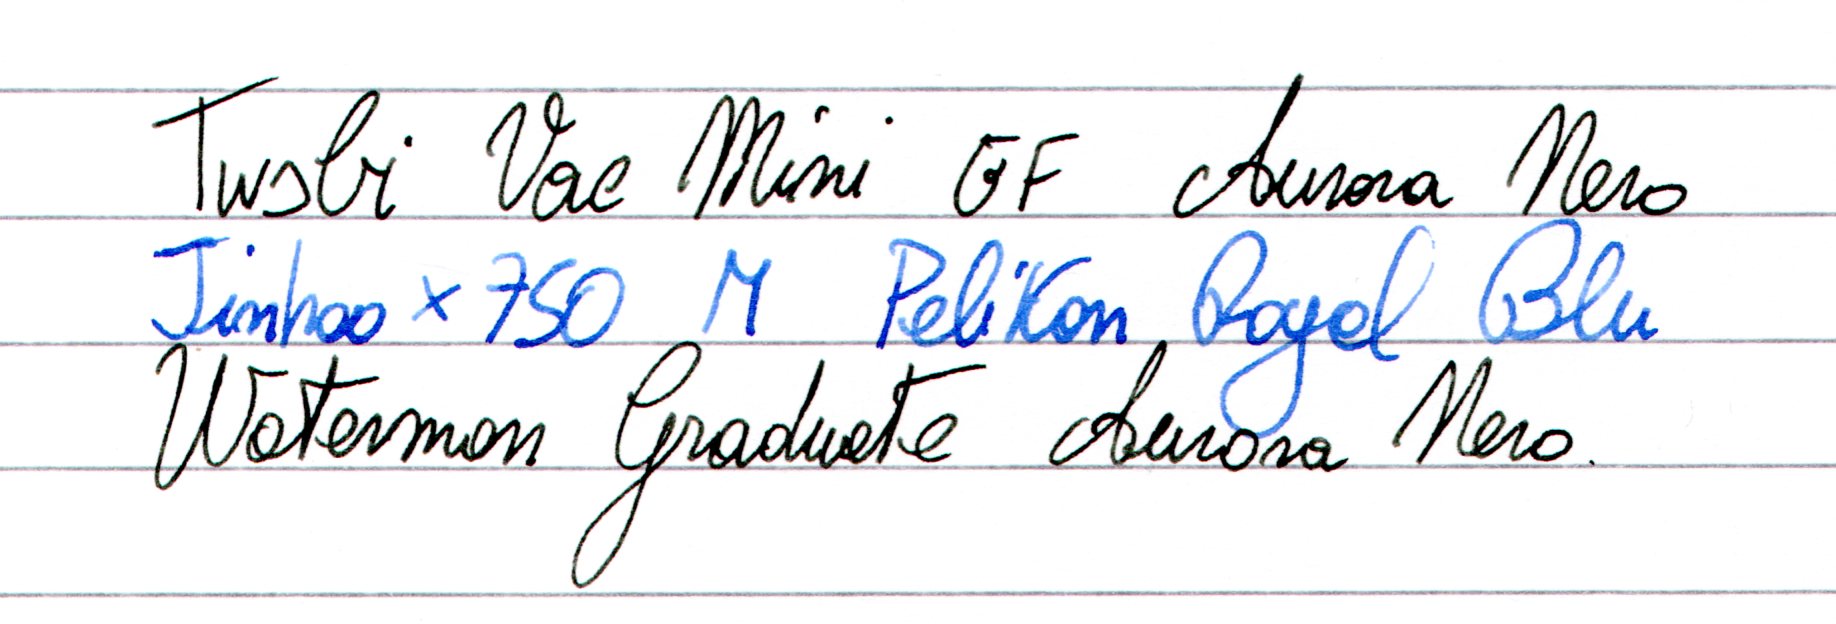 Twsbi Vac Mini EF Aurora Nero
Jinhao x 750 M Pelikan Royal Blu
Waterman Graduate Aurora Nero.